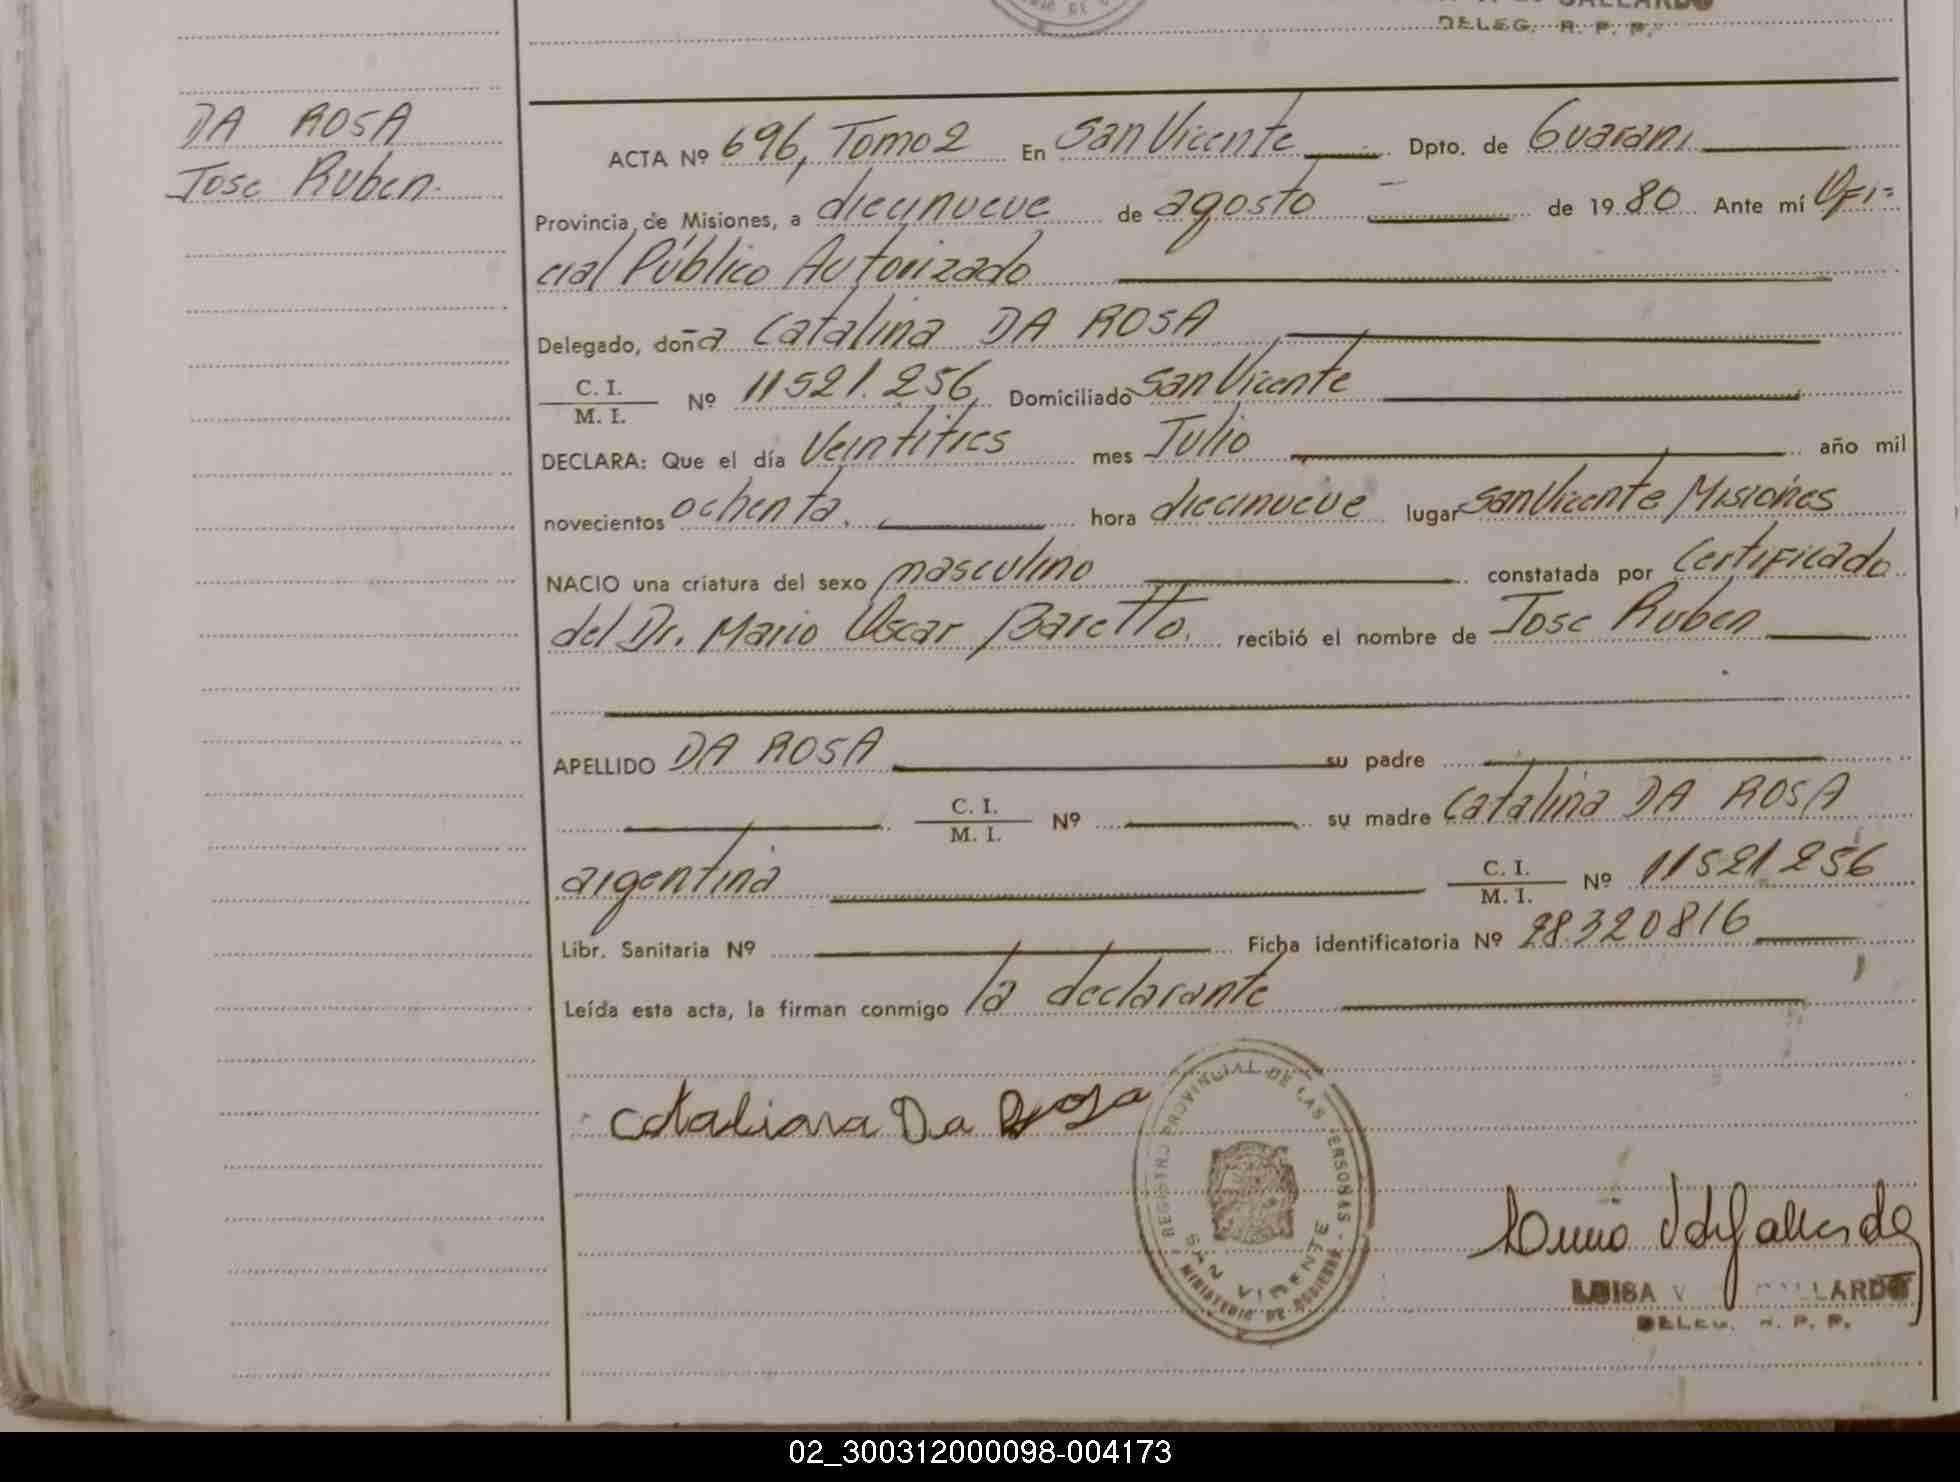 DELEG. R. P. P.
DA ROSA
Jose Ruben.
ACTA Nº 696, Tomo 2 En San Vicente Dpto. de Guarani
Provincia de Misiones, a diecinueve de agosto de 1980 Ante mí Ofi=
cial Público Autorizado
Delegado, doña Catalina DA ROSA
C. I.
M. I. Nº 11521.256, Domiciliado San Vicente
DECLARA: Que el día Veintitres mes Julio año mil
novecientos ochenta. hora diecinueve lugar San Vicente Misiones
NACIO una criatura del sexo masculino constatada por Certificado
del Dr. Mario Oscar Baretto. recibió el nombre de Jose Ruben
APELLIDO DA ROSA su padre
C. I.
M. I. Nº su madre Catalina DA ROSA
argentina C. I.
M. I. Nº 11521256
Libr. Sanitaria Nº Ficha identificatoria Nº 28320816
Leída esta acta, la firman conmigo la declarante
Cataliana Da Rosa
REGISTRO PROVINCIAL DE LAS PERSONAS -
SAN VICENTE
MINISTERIO DE GOBIERNO
LUISA V GALLARDO
DELEG. R. P. P.
02_300312000098-004173